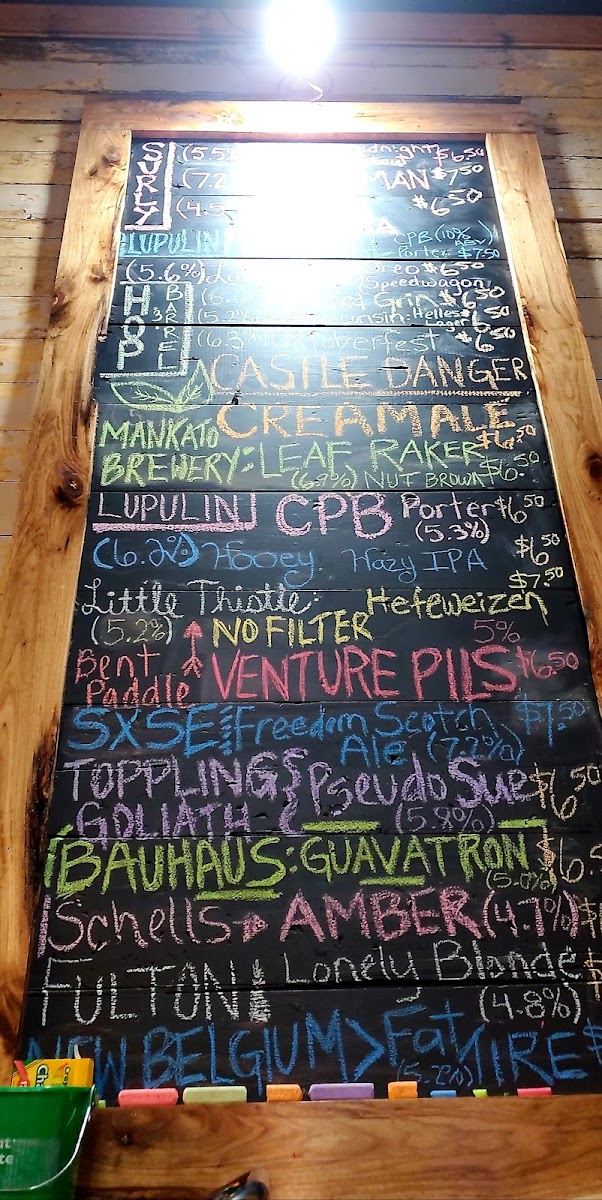 SURLY
(5.5
$6.50
(7.2
MAN $7.50
(4.5
$6.50
LUPULIN
CPB (10% ABV)
Porter $7.50
(5.6%)
oreo $6.50
HOP BARREL
Speedwagon
(6.
ed Grin $6.50
(5.2%
consin: Helles Lager $6.50
(6.3%
toberfest $6.50
CASTLE DANGER
CREAM ALE $6.50
MANKATO BREWERY: LEAF RAKER
(6.9%) NUT BROWN $6.50
LUPULIN CPB Porter $6.50
(5.3%)
(6.2%) Hooey Hazy IPA $6.50
$7.50
Little Thistle: Hefeweizen
(5.2%) NO FILTER
5%
Bent Paddle VENTURE PILS $6.50
SXSE Freedom Scotch Ale (7.2%) $7.50
TOPPLING GOLIATH Pseudo Sue $6.50
(5.8%)
BAUHAUS: GUAVATRON
(5.0%)
Schells AMBER (4.7%)
FULTON Lonely Blonde
(4.8%)
NEW BELGIUM > Fat TIRE $
(5.2%)